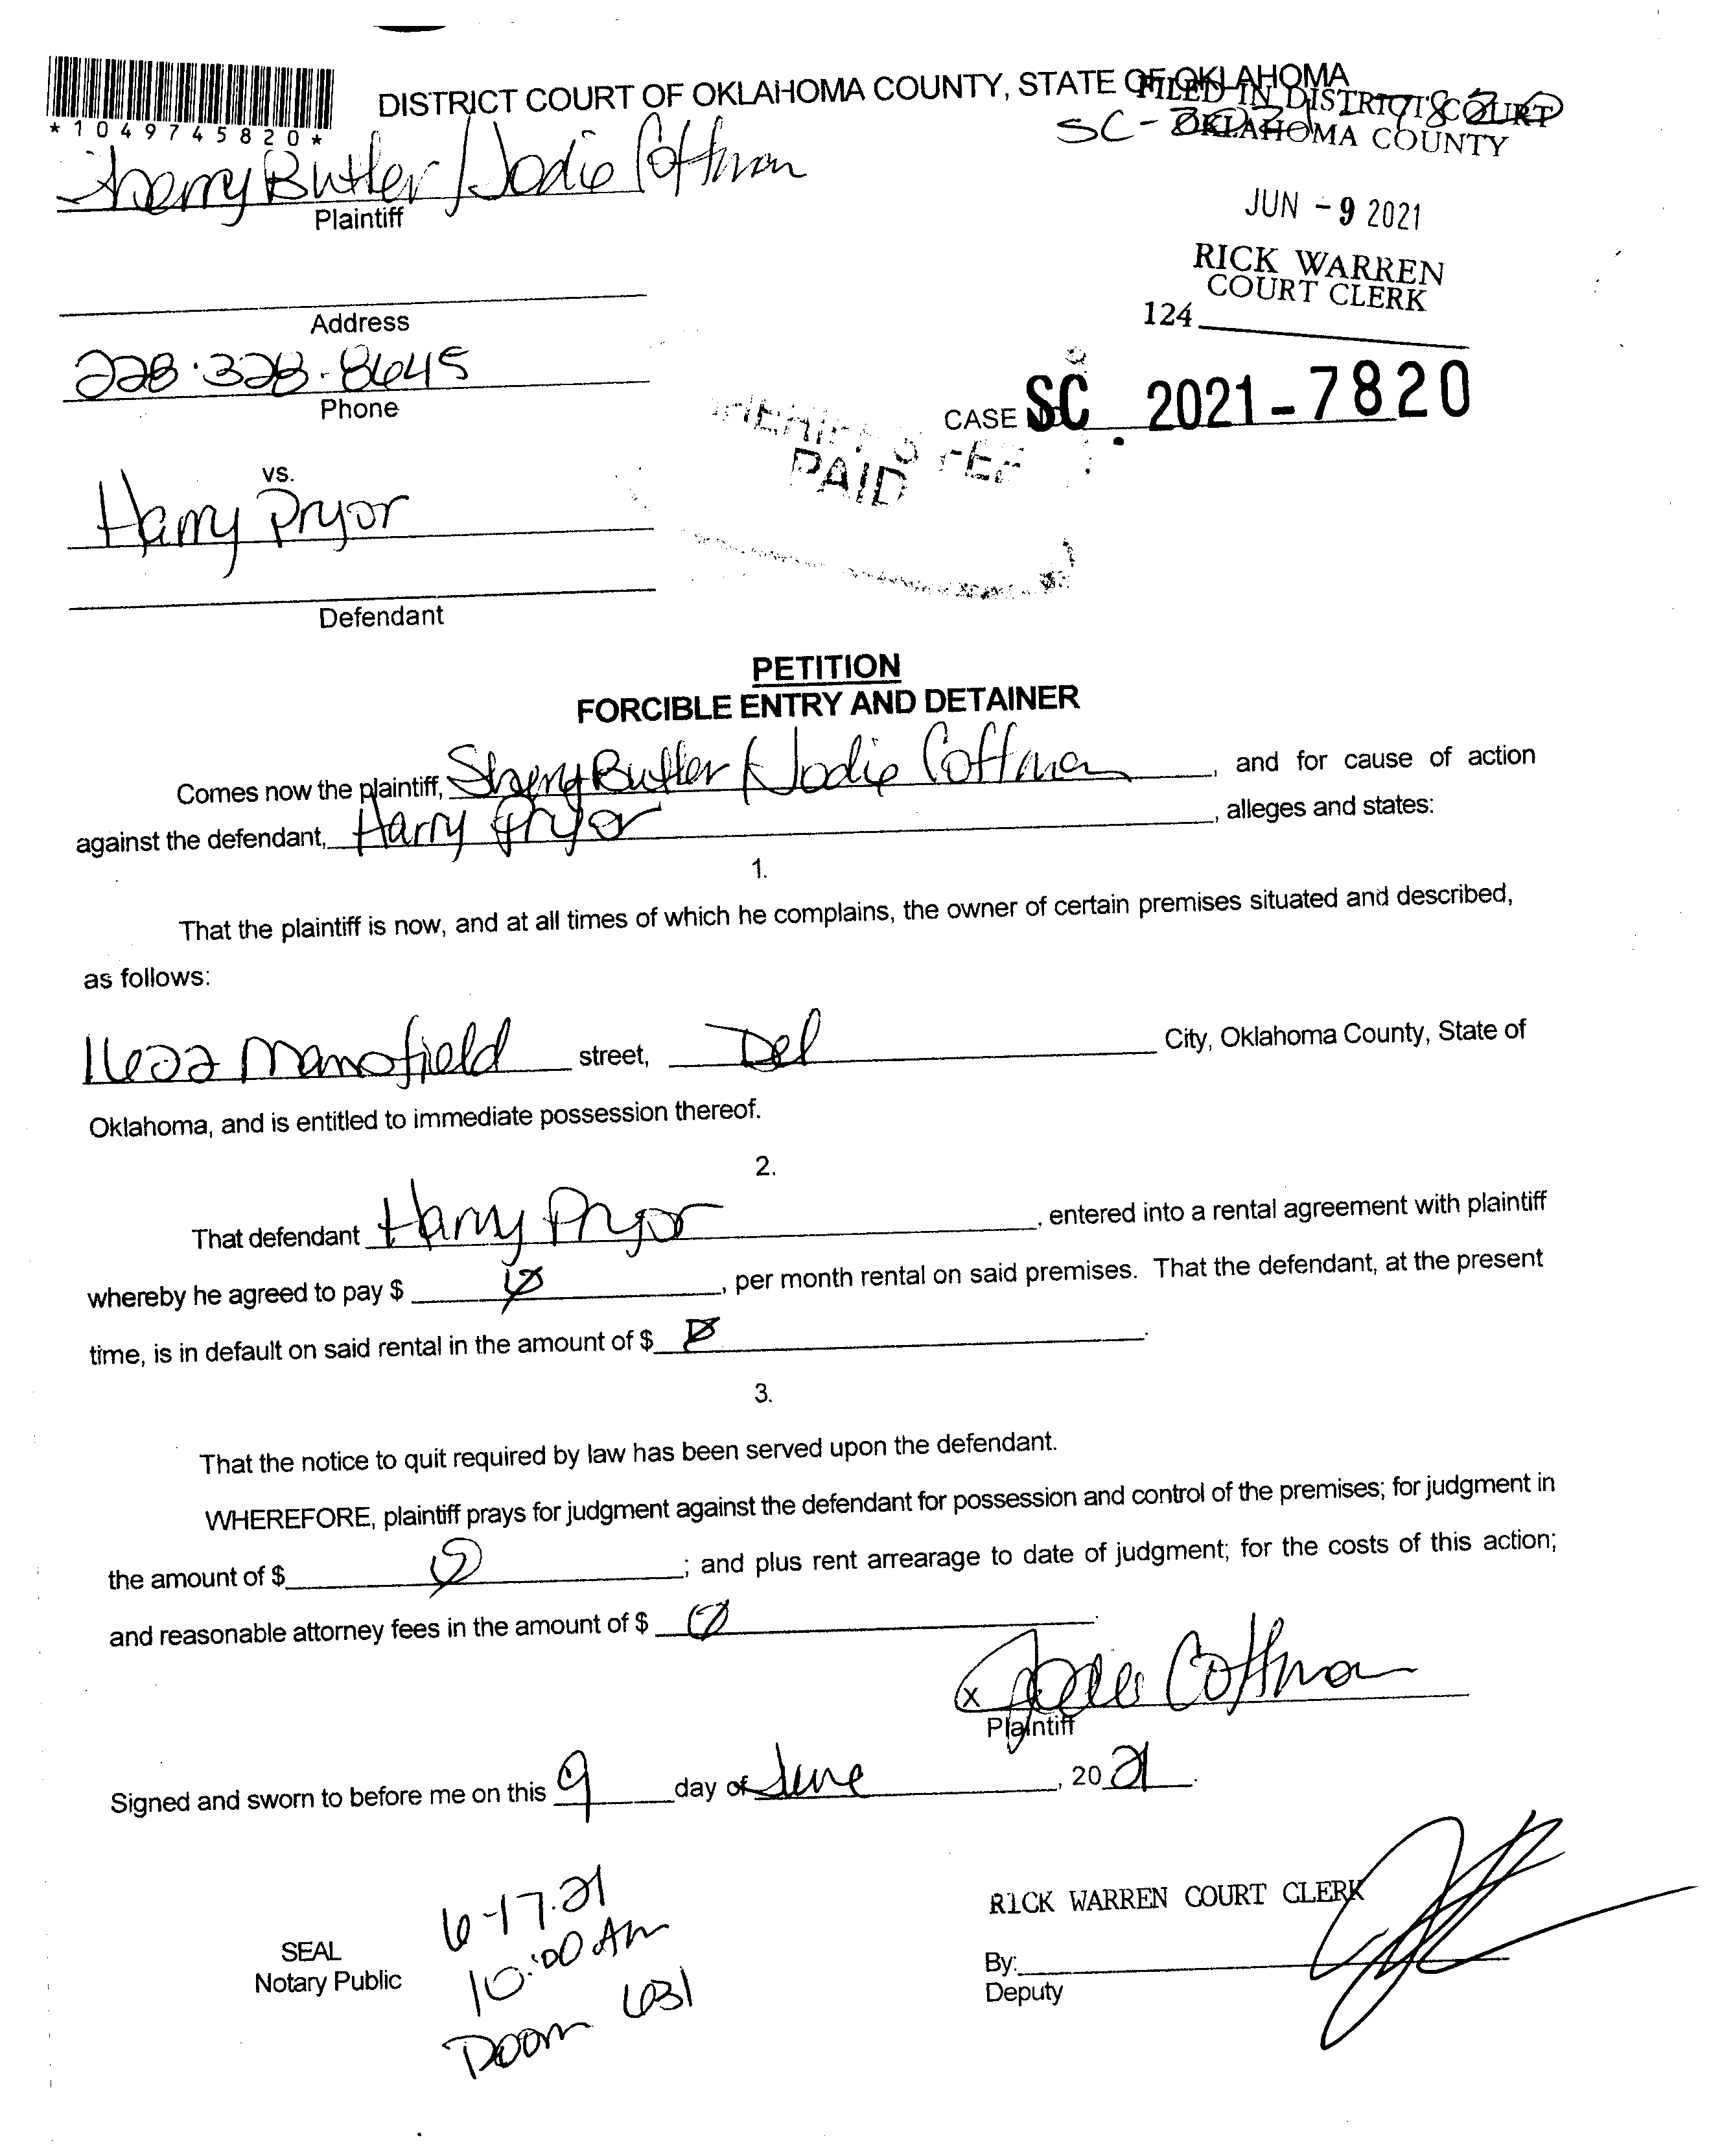 DISTRICT COURT OF OKLAHOMA COUNTY, STATE OF OKLAHOMA
FILED IN DISTRICT COURT
OKLAHOMA COUNTY
SC-2021-7820
*1049745820*
Sherry Butler/Jodie Coffman
Plaintiff
JUN -9 2021
RICK WARREN
COURT CLERK
124
Address
228.328.8645
Phone
CASE SC 2021-7820
SHERIFF'S FEE
PAID
vs.
Harry Pryor
Defendant
PETITION
FORCIBLE ENTRY AND DETAINER
Comes now the plaintiff, Sherry Butler / Jodie Coffman, and for cause of action
against the defendant, Harry Pryor, alleges and states:
1.
That the plaintiff is now, and at all times of which he complains, the owner of certain premises situated and described,
as follows:
1622 Mansfield street, Del City, Oklahoma County, State of
Oklahoma, and is entitled to immediate possession thereof.
2.
That defendant Harry Pryor, entered into a rental agreement with plaintiff
whereby he agreed to pay $ Ø, per month rental on said premises. That the defendant, at the present
time, is in default on said rental in the amount of $ Ø.
3.
That the notice to quit required by law has been served upon the defendant.
WHEREFORE, plaintiff prays for judgment against the defendant for possession and control of the premises; for judgment in
the amount of $ Ø; and plus rent arrearage to date of judgment; for the costs of this action;
and reasonable attorney fees in the amount of $ Ø.
x Jodie Coffman
Plaintiff
Signed and sworn to before me on this 9 day of June, 2021.
RICK WARREN COURT CLERK
SEAL
Notary Public
By:
Deputy
6-17-21
10:00 AM
Room 631